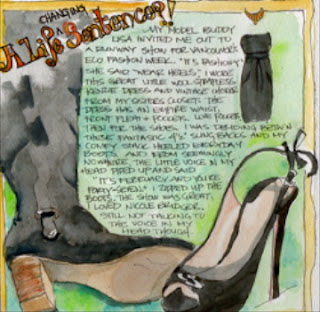 CHANGING A
A Life Sentence?!
...MY MODEL BUDDY
LISA INVITED ME OUT TO
A RUNWAY SHOW FOR VANCOUVER'S
ECO FASHION WEEK. "IT'S FASHION!"
SHE SAID "WEAR HEELS". I WORE
THIS GREAT LITTLE WOOL STRAPLESS
KENZIE DRESS AND VINTAGE CHOKER
FROM MY SISTERS CLOSET. THE
DRESS HAS AN EMPIRE WAIST,
FRONT PLEAT + POCKETS. LOVE POCKETS
THEN FOR THE SHOES. I WAS
THESE FANTASTIC 4½" SLING BACKS AND MY
COMFY STACK HEELED EVERYDAY
BOOTS. AND FROM SEEMINGLY
NOWHERE, THE LITTLE VOICE IN MY
HEAD PIPED UP AND SAID
"IT'S FEBRUARY AND YOU'RE
FORTY-SEVEN." I ZIPPED UP THE
BOOTS. THE SHOW WAS GREAT,
I LOVED NICOLE BRIDGER.
STILL NOT TALKING TO
THE VOICE IN MY
HEAD THOUGH.